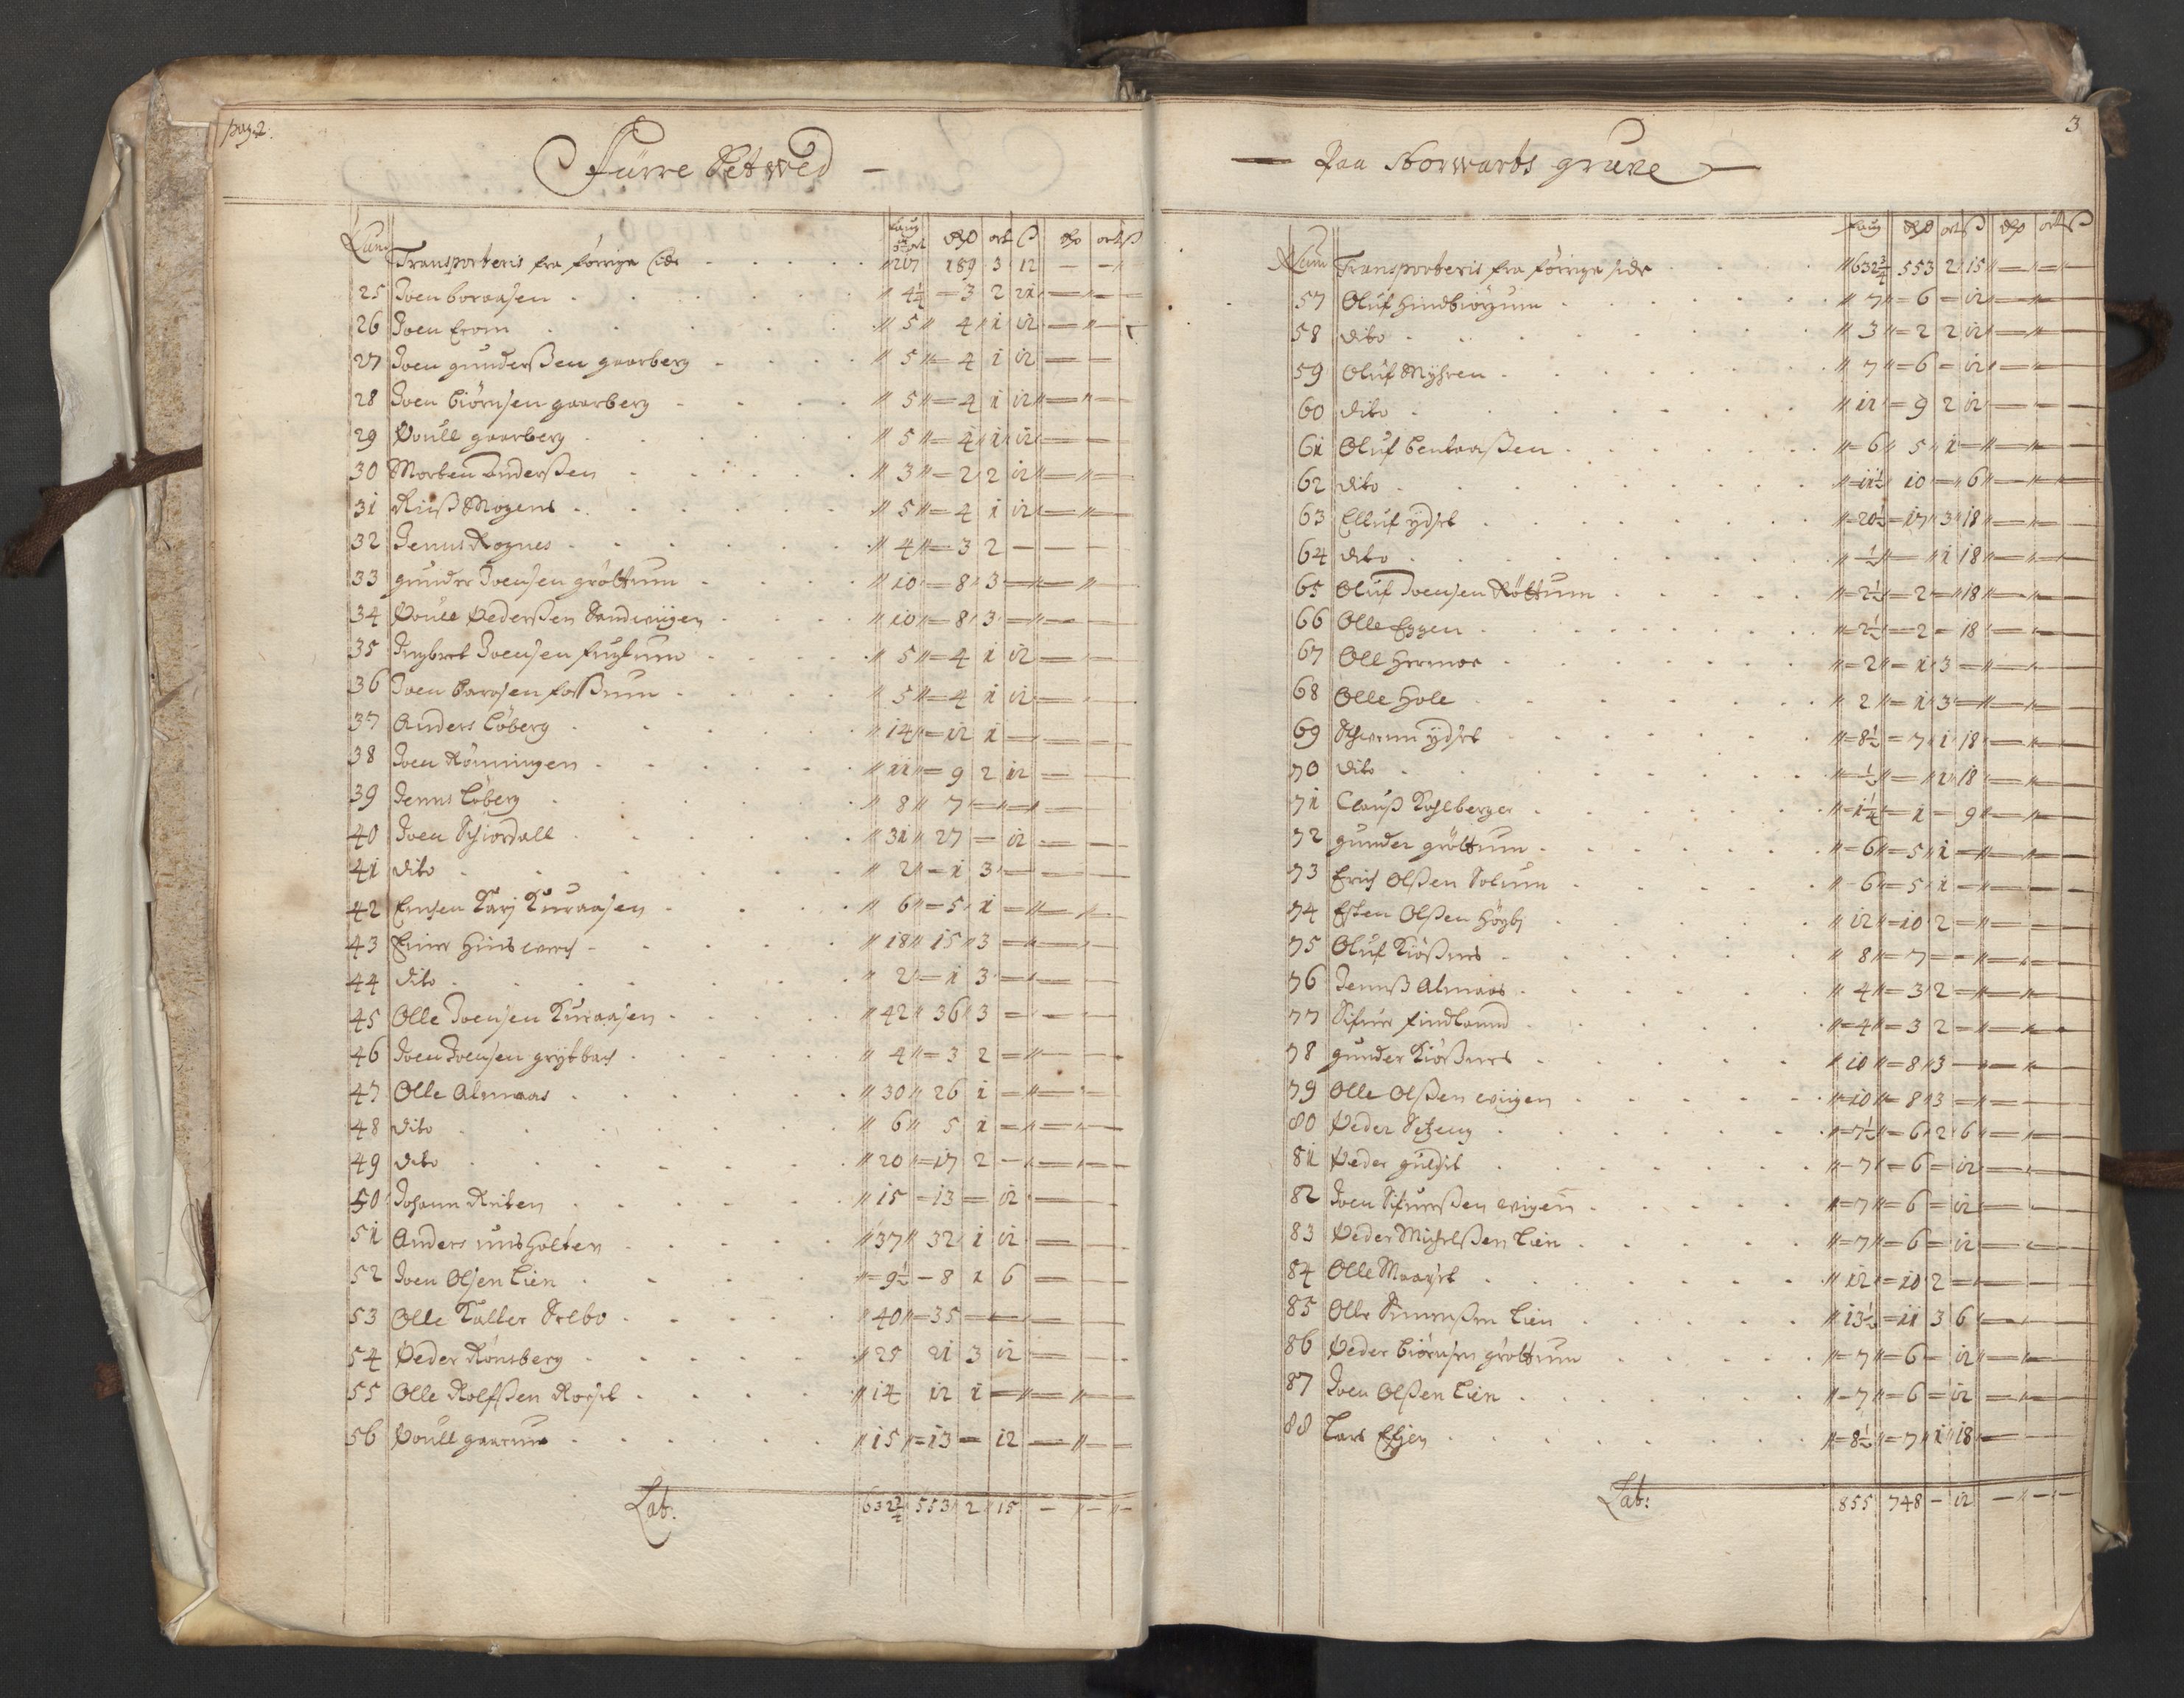 pag. 2.
Fürre Setwed —
Num favg ort Rdr ort ß Rdr ort ß
Transporteris fra forrige side 217 189 3 12 — —
25 Joen boraasen 4¼ 3 2 21
26 Joen Erom 5 4 1 12
27 Joen gunderßen gaarberg 5 4 1 12
28 Joen biörnsen gaarberg 5 4 1 12
29 Poull gaarberg 5 4 1 12
30 Morten Anderßen 3 2 2 12
31 Mogens 5 4 1 12
32 Jenns Rognes 4 3 2 —
33 gunder Joensen gröttum 10 8 3 —
34 Poull Pederßen Sandwiigen 10 8 3 —
35 Ingbret Joensen fuglum 5 4 1 12
36 Joen barosen foßum 5 4 1 12
37 Anders Löberg 14 12 1 —
38 Joen Rönningen 11 9 2 12
39 Jenns Löberg 8 7 — —
40 Joen Schiordall 31 27 — 12
41 dito 2 1 3 —
42 Kuraasen 6 5 1 —
43 18 15 3 —
44 dito 2 1 3 —
45 Olle Joensen Kuraasen 42 36 3 —
46 Joen Joensen grytbach 4 3 2 —
47 Olle Almaas 30 26 1 —
48 dito 6 5 1 —
49 dito 20 17 2 —
50 Johann Reiten 15 13 — 12
51 Anders unsholten 37 32 1 12
52 Joen Olsen Lien 9½ 8 1 6
53 Olle Kaller Selbo 40 35 — —
54 Peder Rönsberg 25 21 3 12
55 Olle Rolfßen 14 12 1 —
56 Poull gaarum 15 13 — 12
Lat. 632¾ 553 2 15 — — —
3
— Paa Storwarts gruve —
Num favg Rdr ort ß Rdr ort ß
Transporteris fra forrige side 632¾ 553 2 15 — —
57 Oluf hindbiörgum 7 6 — 12
58 dito 3 2 2 12
59 Oluf Myhren 7 6 — 12
60 dito 11 9 2 12
61 Oluf bentaaßen 6 5 1 —
62 dito 11½ 10 — 6
63 Elluf ydset 20½ 17 3 18
64 dito ½ — 1 18
65 Oluf Joensen Röttum 2½ 2 — 18
66 Olle Eggen 2½ 2 — 18
67 Oll hermoe 2 1 3 —
68 Olle hole 2 1 3 —
69 ydset 8½ 7 1 18
70 dito ½ — 1 18
71 Clauß Kohlberger 1¼ 1 — 9
72 gunder gröttum 6 5 1 —
73 Erich Olßen Solum 6 5 1 —
74 Esten Olßen höyby 12 10 2 —
75 Oluf Kiößnes 8 7 — —
76 Jennß Almaas 4 3 2 —
77 Sifuer findland 4 3 2 —
78 gunder Kiößnes 10 8 3 —
79 Olle Olßen wiigen 10 8 3 —
80 Peder Setzeng 7½ 6 2 6
81 Peder guldset 7 6 — 12
82 Joen Sifuerßen wigen 7 6 — 12
83 Peder Michelßen Lien 7 6 — 12
84 Olle Moosset 12 10 2 —
85 Olle Simenßen Lien 13½ 11 3 6
86 Peder biörnsen gröttum 7 6 — 12
87 Joen Olßen Lien 7 6 — 12
88 Lars Essjen 8½ 7 1 18
Lat: 855 748 — 12 — — —